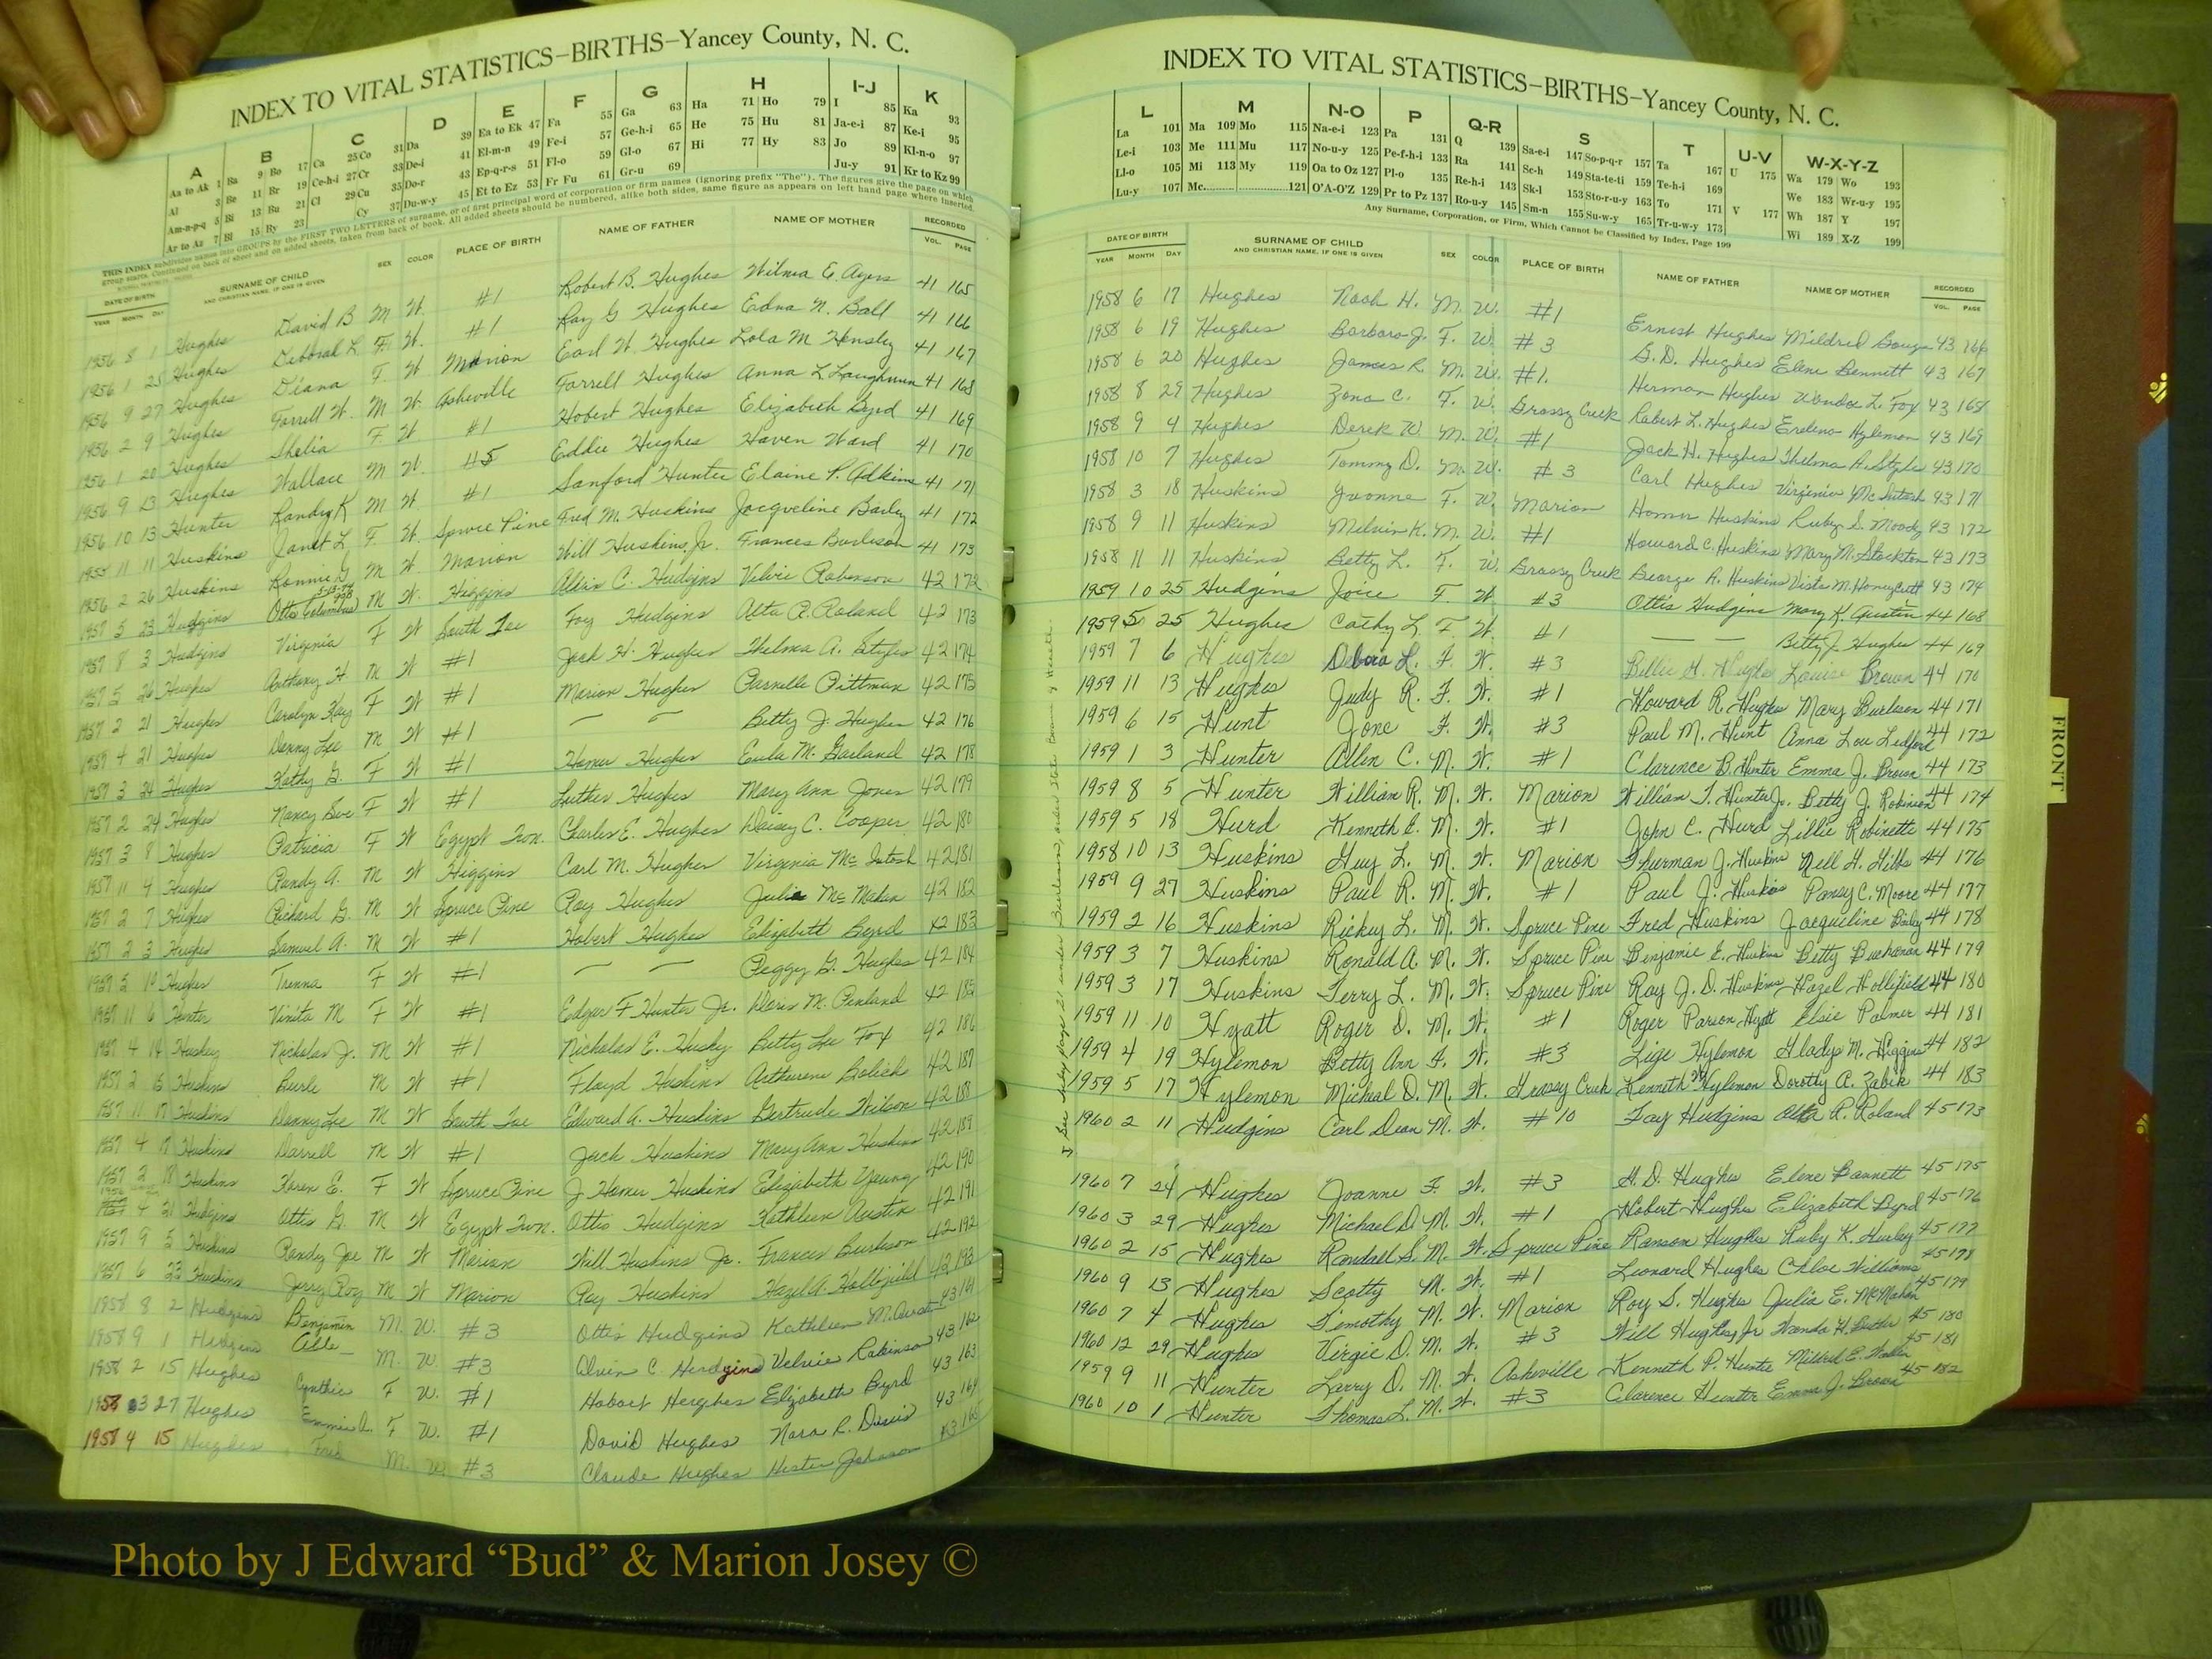 INDEX TO VITAL STATISTICS–BIRTHS–Yancey County, N. C.
A B C D E F G H I-J K
Aa to Ak 1 Ba 9 Bo 17 Ca 25 Co 31 Da 39 Ea to Ek 47 Fa 55 Ga 63 Ha 71 Ho 79 I 85 Ka 93
Al 3 Be 11 Br 19 Ce-h-i 27 Cr 33 De-i 41 El-m-n 49 Fe-i 57 Ge-h-i 65 He 75 Hu 81 Ja-e-i 87 Ke-i 95
Am-n-p-q 5 Bi 13 Bu 21 Cl 29 Cu 35 Do-r 43 Ep-q-r-s 51 Fl-o 59 Gl-o 67 Hi 77 Hy 83 Jo 89 Kl-n-o 97
Ar to Az 7 Bl 15 By 23 Cy 37 Du-w-y 45 Et to Ez 53 Fr Fu 61 Gr-u 69 Ju-y 91 Kr to Kz 99
THIS INDEX subdivides names into GROUPS by the FIRST TWO LETTERS of surname, or of first principal word of corporation or firm names (ignoring prefix "The"). The figures give the page on which
group starts. Continued on back of sheet and on added sheets, taken from back of book. All added sheets should be numbered, alike both sides, same figure as appears on left hand page where inserted.
DATE OF BIRTH SURNAME OF CHILD SEX COLOR PLACE OF BIRTH NAME OF FATHER NAME OF MOTHER RECORDED
YEAR MONTH DAY AND CHRISTIAN NAME, IF ONE IS GIVEN VOL. PAGE
1956 8 1 Hughes David B M W. #1 Robert B. Hughes Wilma E. Ayers 41 165
1956 1 25 Hughes Deborah L. F. W. #1 Ray G Hughes Edna N. Ball 41 166
1956 9 27 Hughes Diana F. W Marion Earl W. Hughes Lola M Hensley 41 167
1956 2 9 Hughes Farrell W. M W. Asheville Farrell Hughes Anna L Laughrun 41 168
1956 1 20 Hughes Shelia F. W #1 Hobert Hughes Elizabeth Byrd 41 169
1956 9 23 Hughes Wallace M W. #5 Eddie Hughes Haven Ward 41 170
1956 10 13 Hunter Randy K M W #1 Sanford Hunter Elaine P. Adkins 41 171
1955 11 11 Huskins Janet L F W. Spruce Pine Fred M. Huskins Jacqueline Bailey 41 172
1956 2 26 Huskins Ronnie G M W. Marion Will Huskins, Jr. Frances Burleson 41 173
1957 5 23 Hudgins Otto Columbus M W. Higgins Alvin C. Hudgins Velvie Robinson 42 172
1957 8 3 Hudgins Virginia F W South Toe Foy Hudgins Alta R. Roland 42 173
1957 5 26 Hughes Anthony H M W #1 Jack H. Hughes Thelma A. Styles 42 174
1957 2 21 Hughes Carolyn Kay F W #1 Marion Hughes Parnelle Pittman 42 175
1957 4 21 Hughes Danny Lee M W #1 — — Betty J. Hughes 42 176
1957 3 24 Hughes Kathy G. F W #1 Homer Hughes Eula M. Garland 42 178
1957 2 24 Hughes Nancy Sue F W #1 Luther Hughes Mary Ann Jones 42 179
1957 3 8 Hughes Patricia F W Egypt Twn. Charles E. Hughes Daisey C. Cooper 42 180
1957 11 4 Hughes Randy A. M W Higgins Carl M. Hughes Virginia McIntosh 42 181
1957 2 7 Hughes Richard G. M W Spruce Pine Roy Hughes Julia McMahan 42 182
1957 2 3 Hughes Samuel A. M W #1 Hobert Hughes Elizabeth Byrd 42 183
1957 5 10 Hughes Trenna F W #1 — — Peggy G. Hughes 42 184
1957 11 6 Hunter Vinita M F W #1 Edgar F Hunter Jr. Doris M. Penland 42 185
1957 4 14 Huskey Nicholas J. M W #1 Nicholas E. Husky Betty Lee Fox 42 186
1957 2 15 Huskins Burle M W #1 Floyd Huskins Arthurene Bolick 42 187
1957 11 17 Huskins Danny Lee M W South Toe Edward A. Huskins Gertrude Wilson 42 188
1957 4 17 Huskins Darrell M W #1 Jack Huskins Mary Ann Huskins 42 189
1957 2 18 Huskins Karen E. F W Spruce Pine J. Homer Huskins Elizabeth Young 42 190
4 21 Hudgins Ottis G. M W Egypt Twn. Ottis Hudgins Kathleen Austin 42 191
1957 9 5 Huskins Randy Joe M W Marion Will Huskins Jr. Frances Burleson 42 192
1957 6 23 Huskins Jerry Roy M W Marion Ray Huskins Hazel A. Hollifield 42 193
1958 8 2 Hudgins Benjamin M. W. #3 Ottis Hudgins Kathleen M. Austin 43 161
1958 9 1 Hudgins M. W. #3 Alvin C. Hudgins Velvie Robinson 43 162
1958 2 15 Hughes Cynthia F W. #1 Hobart Hughes Elizabeth Byrd 43 163
1958 3 27 Hughes Emmie A. F W. #1 David Hughes Nora R. Davis 43 164
1958 4 15 Hughes Fred M. W. #3 Claude Hughes Hester Johnson 43 165
INDEX TO VITAL STATISTICS–BIRTHS–Yancey County, N. C.
L M N-O P Q-R S T U-V W-X-Y-Z
La 101 Ma 109 Mo 115 Na-e-i 123 Pa 131 Q 139 Sa-e-i 147 So-p-q-r 157 Ta 167 U 175 Wa 179 Wo 193
Le-i 103 Me 111 Mu 117 No-u-y 125 Pe-f-h-i 133 Ra 141 Sc-h 149 Sta-te-ti 159 Te-h-i 169 We 183 Wr-u-y 195
Ll-o 105 Mi 113 My 119 Oa to Oz 127 Pl-o 135 Re-h-i 143 Sk-l 153 Sto-r-u-y 163 To 171 V 177 Wh 187 Y 197
Lu-y 107 Mc 121 O'A-O'Z 129 Pr to Pz 137 Ro-u-y 145 Sm-n 155 Su-w-y 165 Tr-u-w-y 173 Wi 189 X-Z 199
Any Surname, Corporation, or Firm, Which Cannot be Classified by Index, Page 199
DATE OF BIRTH SURNAME OF CHILD SEX COLOR PLACE OF BIRTH NAME OF FATHER NAME OF MOTHER RECORDED
YEAR MONTH DAY AND CHRISTIAN NAME, IF ONE IS GIVEN VOL. PAGE
1958 6 17 Hughes Noah H. M. W. #1 Ernest Hughes Mildred Gouge 43 166
1958 6 19 Hughes Barbara J. F. W. #3 G.D. Hughes Elene Bennett 43 167
1958 6 20 Hughes James R. M. W. #1. Herman Hughes Wanda L. Fox 43 168
1958 8 29 Hughes Zona C. F. W. Grassy Creek Robert L. Hughes Eredena Hylemon 43 169
1958 9 4 Hughes Derek W. M. W. #1 Jack H. Hughes Thelma A. Styles 43 170
1958 10 7 Hughes Tommy D. M. W. #3 Carl Hughes Virginia McIntosh 43 171
1958 3 18 Huskins Yvonne F. W. Marion Homer Huskins Ruby S. Moody 43 172
1958 9 11 Huskins Melvin K. M. W. #1 Howard C. Huskins Mary M. Stockton 43 173
1958 11 11 Huskins Betty L. F. W. Grassy Creek George R. Huskins Vista M. Honeycutt 43 174
1959 10 25 Hudgins Joice F. W. #3 Ottis Hudgins Mary K. Austin 44 168
1959 5 25 Hughes Cathy L. F. W. #1 — — Betty J. Hughes 44 169
1959 7 6 Hughes Debora L. F. W. #3 Billie H. Hughes Louise Brown 44 170
1959 11 13 Hughes Judy R. F. W. #1 Howard R. Hughes Mary Burleson 44 171
1959 6 15 Hunt Jone F. W. #3 Paul M. Hunt Anna Lou Ledford 44 172
1959 1 3 Hunter Allen C. M. W. #1 Clarence B. Hunter Emma J. Brown 44 173
1959 8 5 Hunter William R. M. W. Marion William T. Hunter Jr. Betty J. Robinson 44 174
1959 5 18 Hurd Kenneth E. M. W. #1 John C. Hurd Lillie Robinette 44 175
1958 10 13 Huskins Guy L. M. W. Marion Thurman J. Huskins Nell H. Gibbs 44 176
1959 9 27 Huskins Paul R. M. W. #1 Paul J. Huskins Pansy C. Moore 44 177
1959 2 16 Huskins Rickey L. M. W. Spruce Pine Fred Huskins Jacqueline Bailey 44 178
1959 3 7 Huskins Ronald A. M. W. Spruce Pine Benjamie E. Huskins Betty Buchanan 44 179
1959 3 17 Huskins Terry L. M. W. Spruce Pine Ray J. D. Huskins Hazel Hollifield 44 180
1959 11 10 Hyatt Roger D. M. W. #1 Roger Parson Hyatt Elsie Palmer 44 181
1959 4 19 Hylemon Betty Ann F. W. #3 Lige Hylemon Gladys M. Higgins 44 182
1959 5 17 Hylemon Micheal D. M. W. Grassy Creek Kenneth W Hylemon Dorothy A. Zabik 44 183
1960 2 11 Hudgins Carl Dean M. W. #10 Fay Hudgins Alta R. Roland 45 173
1960 7 24 Hughes Joanne F. W. #3 G. D. Hughes Elene Bannett 45 175
1960 3 29 Hughes Michael D. M. W. #1 Hobert Hughes Elizabeth Byrd 45 176
1960 2 15 Hughes Randael S. M. W. Spruce Pine Ranson Hughes Ruby K. Hurley 45 177
1960 9 13 Hughes Scotty M. W. #1 Leonard Hughes Chloe Williams 45 178
1960 7 4 Hughes Timothy M. W. Marion Roy S. Hughes Julia E. McMahan 45 179
1960 12 29 Hughes Virgie D. M. W. #3 Will Hughes, Jr Wanda H. 45 180
1959 9 11 Hunter Larry D. M. W. Asheville Kenneth P. Hunter Mildred E. 45 181
1960 10 1 Hunter Thomas L. M. W. #3 Clarence Hunter Emma J. Brown 45 182
FRONT
Photo by J Edward “Bud” & Marion Josey ©